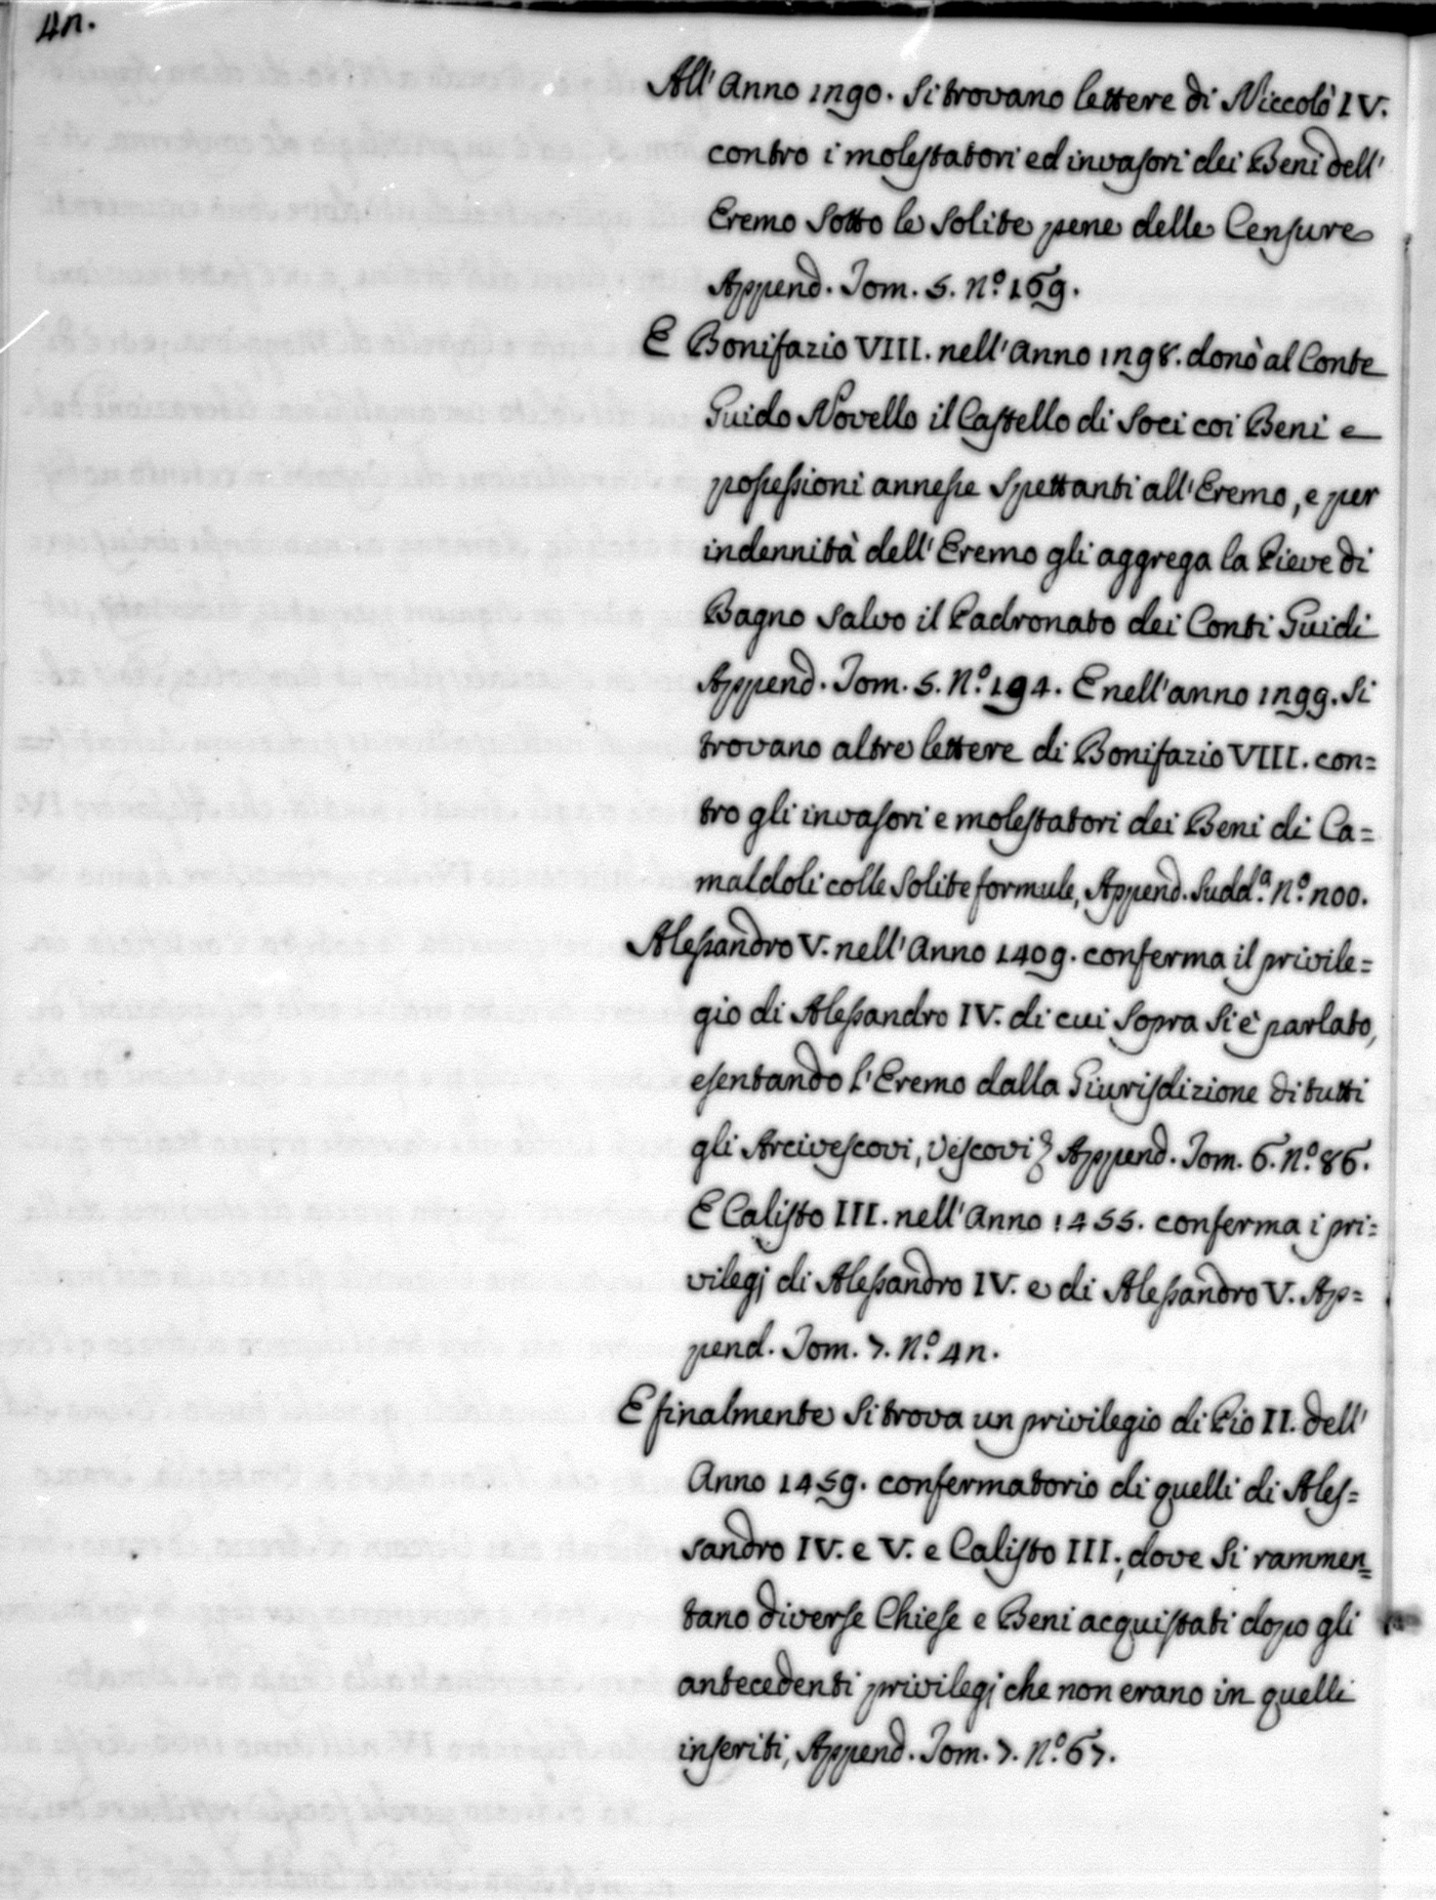 42.
All' Anno 1290. si trovano lettere di Niccolò IV.
contro i molestatori ed invasori dei Beni dell'
Eremo sotto le solite pene delle Censure
Append. Tom. 5. N.º 169.
E Bonifazio VIII. nell' Anno 1298. donò al Conte
Guido Novello il Castello di Soci coi Beni e
possessioni annesse spettanti all' Eremo, e per
indennità dell' Eremo gli aggrega la Pieve di
Bagno salvo il Padronato dei Conti Guidi
Append. Tom. 5. N.º 194. E nell' anno 1299. si
trovano altre lettere di Bonifazio VIII. con=
tro gli invasori e molestatori dei Beni di Ca=
maldoli colle solite formule, Append. Sudd.ª N.º 200.
Alessandro V. nell' Anno 1409. conferma il privile=
gio di Alessandro IV. di cui sopra si è parlato,
esentando l' Eremo dalla Giurisdizione di tutti
gli Arcivescovi, Vescovi & Append. Tom. 6. N.º 86.
E Calisto III. nell' Anno 1455. conferma i pri=
vilegj di Alessandro IV. e di Alessandro V. Ap=
pend. Tom. 7. N.º 42.
E finalmente si trova un privilegio di Pio II. dell'
Anno 1459. confermatorio di quelli di Ales=
sandro IV. e V. e Calisto III., dove si rammen=
tano diverse Chiese e Beni acquistati dopo gli
antecedenti privilegj che non erano in quelli
inseriti, Append. Tom. 7. N.º 67.